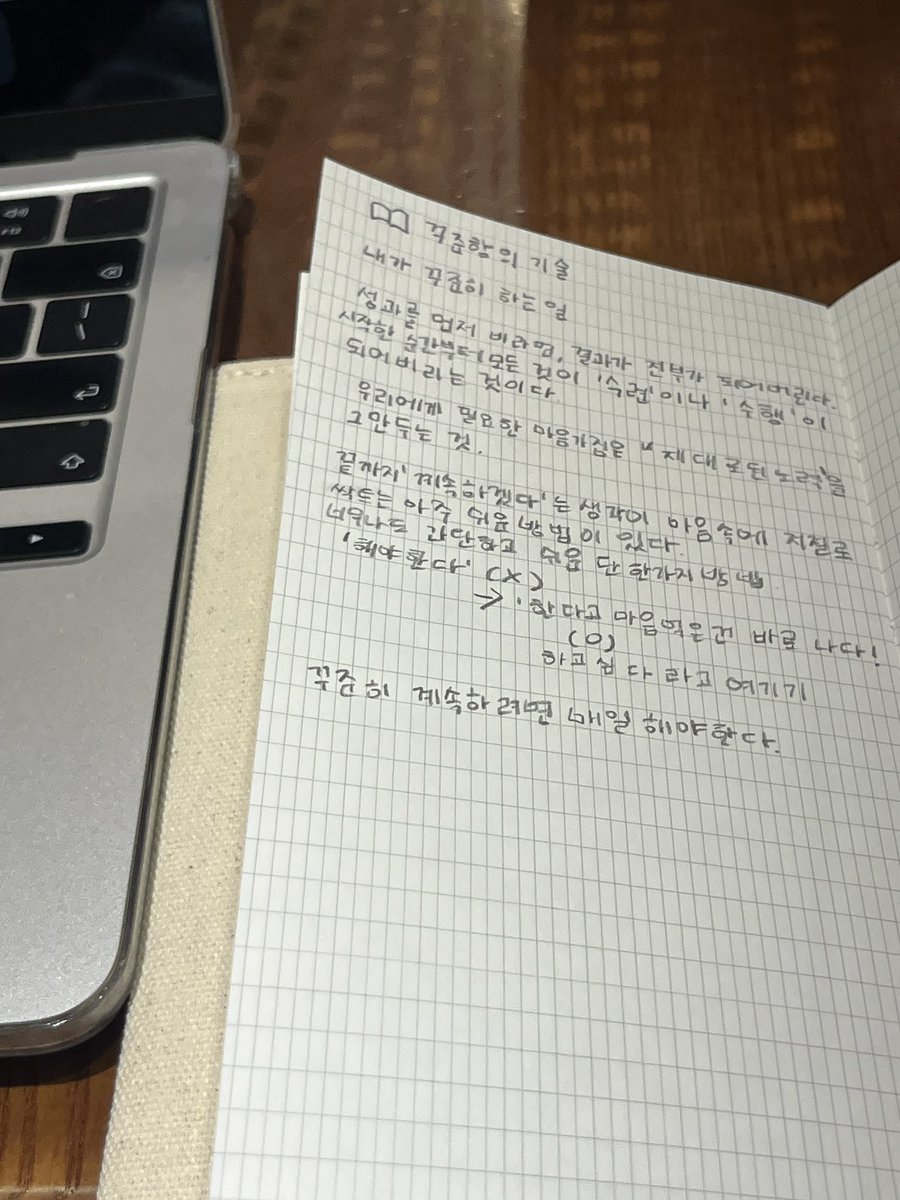 꾸준함의 기술
내가 꾸준히 하는 일
성과를 먼저 바라면, 결과가 전부가 되어버린다.
시작한 순간부터 모든 것이 '수련'이나 '수행'이
되어버리는 것이다
우리에게 필요한 마음가짐은 "제대로된 노력"을
그만두는 것.
끝까지 '계속하겠다'는 생각이 마음속에 저절로
싹트는 아주 쉬운 방법이 있다.
너무나도 간단하고 쉬운 단 한가지 방법
'해야 한다' (X)
→ '한다고 마음먹은건 바로 나다!
(O)
하고 싶다 라고 여기기
꾸준히 계속하려면 매일 해야한다.
F12